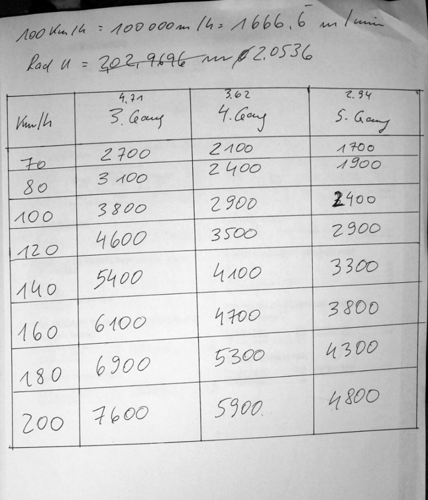 100 Km/h = 100 000 m/h = 1666,6 m/min
Rad U = 202,9696 m 2.0536
4.71 3.62 2.94
Km/h 3. Gang 4. Gang 5. Gang
70 2700 2100 1700
80 3100 2400 1900
100 3800 2900 2400
120 4600 3500 2900
140 5400 4100 3300
160 6100 4700 3800
180 6900 5300 4300
200 7600 5900 4800